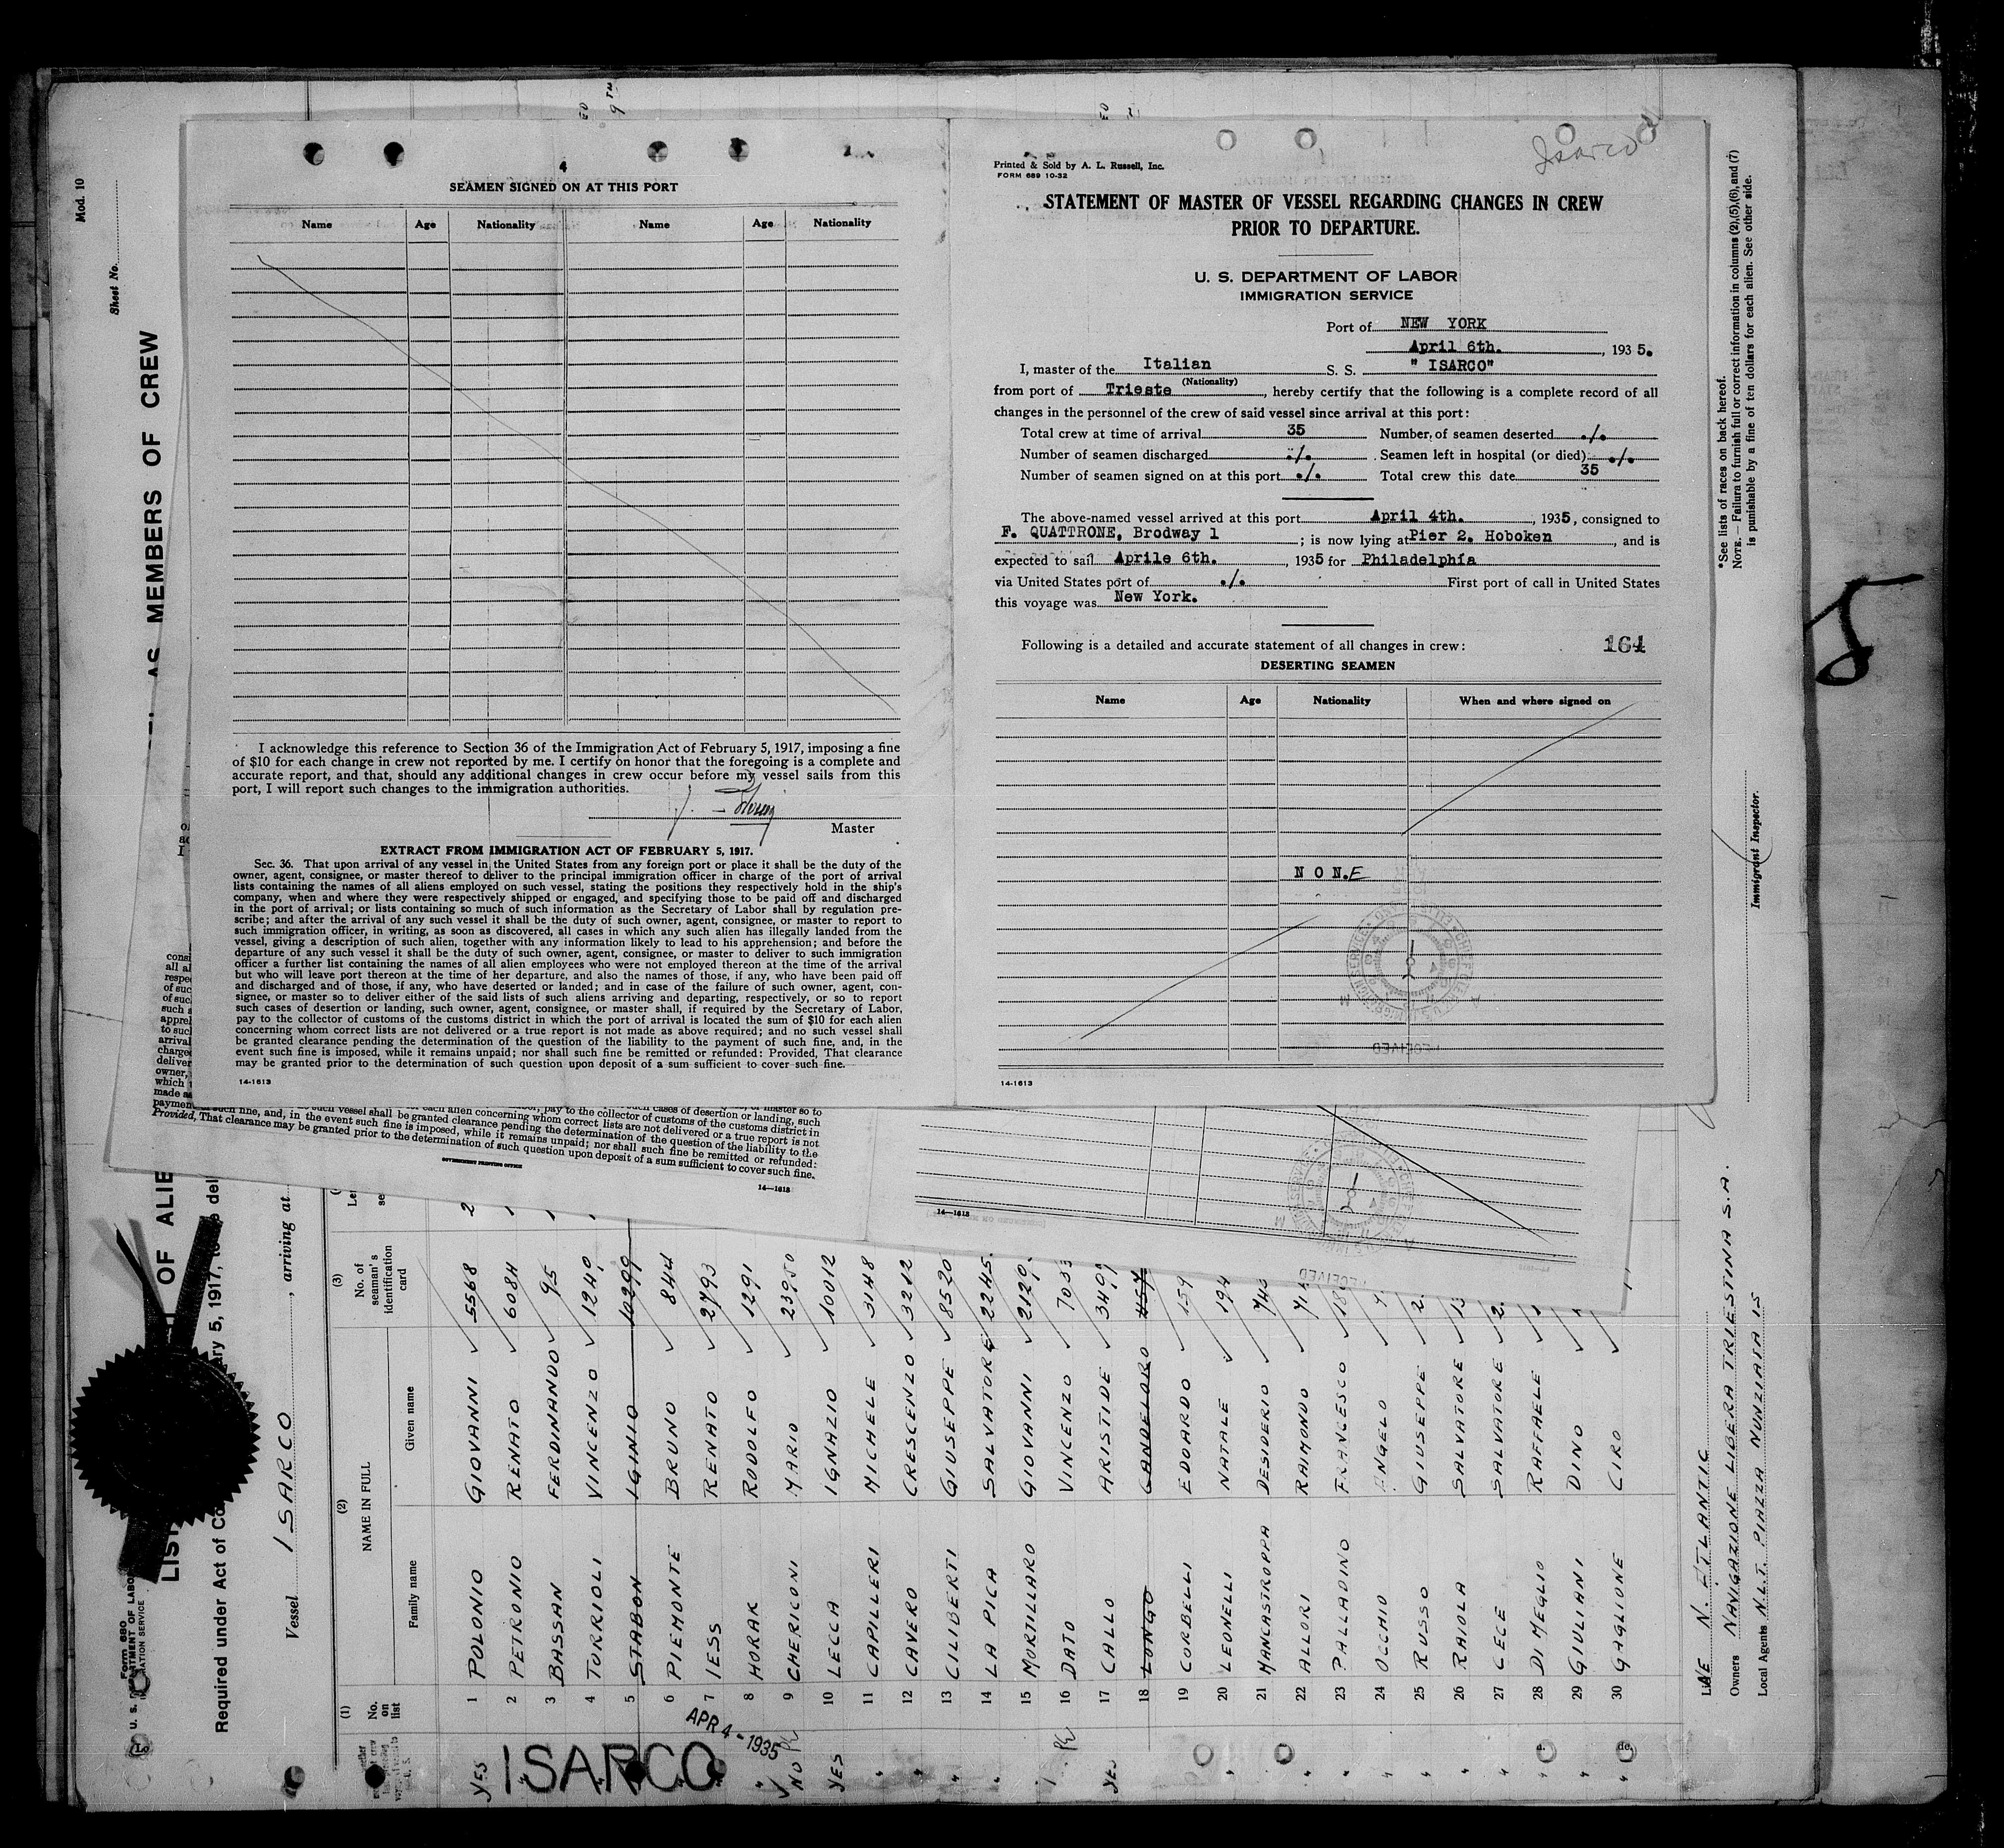 4
SEAMEN SIGNED ON AT THIS PORT
Name Age Nationality Name Age Nationality
I acknowledge this reference to Section 36 of the Immigration Act of February 5, 1917, imposing a fine
of $10 for each change in crew not reported by me. I certify on honor that the foregoing is a complete and
accurate report, and that, should any additional changes in crew occur before my vessel sails from this
port, I will report such changes to the immigration authorities.
Master
EXTRACT FROM IMMIGRATION ACT OF FEBRUARY 5, 1917.
Sec. 36. That upon arrival of any vessel in the United States from any foreign port or place it shall be the duty of the
owner, agent, consignee, or master thereof to deliver to the principal immigration officer in charge of the port of arrival
lists containing the names of all aliens employed on such vessel, stating the positions they respectively hold in the ship's
company, when and where they were respectively shipped or engaged, and specifying those to be paid off and discharged
in the port of arrival; or lists containing so much of such information as the Secretary of Labor shall by regulation pre-
scribe; and after the arrival of any such vessel it shall be the duty of such owner, agent, consignee, or master to report to
such immigration officer, in writing, as soon as discovered, all cases in which any such alien has illegally landed from the
vessel, giving a description of such alien, together with any information likely to lead to his apprehension; and before the
departure of any such vessel it shall be the duty of such owner, agent, consignee, or master to deliver to such immigration
officer a further list containing the names of all alien employees who were not employed thereon at the time of the arrival
but who will leave port thereon at the time of her departure, and also the names of those, if any, who have been paid off
and discharged and of those, if any, who have deserted or landed; and in case of the failure of such owner, agent, con-
signee, or master so to deliver either of the said lists of such aliens arriving and departing, respectively, or so to report
such cases of desertion or landing, such owner, agent, consignee, or master shall, if required by the Secretary of Labor,
pay to the collector of customs of the customs district in which the port of arrival is located the sum of $10 for each alien
concerning whom correct lists are not delivered or a true report is not made as above required; and no such vessel shall
be granted clearance pending the determination of the question of the liability to the payment of such fine, and, in the
event such fine is imposed, while it remains unpaid; nor shall such fine be remitted or refunded: Provided, That clearance
may be granted prior to the determination of such question upon deposit of a sum sufficient to cover such fine.
14-1613
Isarco
Printed & Sold by A. L. Russell, Inc.
FORM 689 10-32
STATEMENT OF MASTER OF VESSEL REGARDING CHANGES IN CREW
PRIOR TO DEPARTURE.
U. S. DEPARTMENT OF LABOR
IMMIGRATION SERVICE
Port of NEW YORK
April 6th. , 1935.
I, master of the Italian S. S. " ISARCO"
(Nationality)
from port of Trieste , hereby certify that the following is a complete record of all
changes in the personnel of the crew of said vessel since arrival at this port:
Total crew at time of arrival 35 Number of seamen deserted ./.
Number of seamen discharged ./. Seamen left in hospital (or died) ./.
Number of seamen signed on at this port ./. Total crew this date 35
The above-named vessel arrived at this port April 4th. , 1935, consigned to
F. QUATTRONE, Brodway 1 ; is now lying at Pier 2. Hoboken , and is
expected to sail Aprile 6th. , 1935 for Philadelphia
via United States port of ./. First port of call in United States
this voyage was New York.
Following is a detailed and accurate statement of all changes in crew: 164
DESERTING SEAMEN
Name Age Nationality When and where signed on
NONE
RECEIVED
14-1613
such fine, and, in the event such fine is imposed, while it remains unpaid; nor shall such fine be remitted or refunded:
Provided, That clearance may be granted prior to the determination of such question upon deposit of a sum sufficient to cover such fine.
GOVERNMENT PRINTING OFFICE
14-1613
14-1613
RECEIVED
Mod. 10
Sheet No.
AS MEMBERS OF CREW
Form 680
U. S. DEPARTMENT OF LABOR
Required under Act of
Vessel ISARCO , arriving at
(1) (2) (3)
No. on list NAME IN FULL No. of seaman's identification card
Family name Given name
YES 1 POLONIO GIOVANNI 5568
" 2 PETRONIO RENATO 6084
3 BASSAN FERDINANDO 95
4 TORRIOLI VINCENZO 1240
5 STABON IGINIO 10299
6 PIEMONTE BRUNO 844
7 IESS RENATO 2793
" 8 HORAK RODOLFO 1291
NO 9 CHERICONI MARIO 23950
YES 10 LECCA IGNAZIO 10012
" 11 CAPILLERI MICHELE 3148
" 12 CAVERO CRESCENZO 3212
" 13 CILIBERTI GIUSEPPE 8520
" 14 LA PICA SALVATORE 2245
15 MORTILLARO GIOVANNI 2129
16 DATO VINCENZO 7033
YES 17 CALLO ARISTIDE 3499
18 LONGO CANDELORO 457
19 CORBELLI EDOARDO 159
" 20 LEONELLI NATALE 194
21 MANCASTROPPA DESIDERIO
" 22 ALLORI RAIMONDO
" 23 PALLADINO FRANCESCO
" 24 OCCHIO ANGELO
" 25 RUSSO GIUSEPPE
" 26 RAIOLA SALVATORE
" 27 CECE SALVATORE
" 28 DI MEGLIO RAFFAELE
" 29 GIULIANI DINO
" 30 GAGLIONE CIRO
APR 4-1935
ISARCO
LINE N. ATLANTIC
Owners NAVIGAZIONE LIBERA TRIESTINA S.A.
Local Agents N.L.T. PIAZZA NUNZIATA 15
Immigrant Inspector.
*See lists of races on back hereof.
NOTE.—Failure to furnish full or correct information in columns (2),(5),(6), and (7)
is punishable by a fine of ten dollars for each alien. See other side.
5